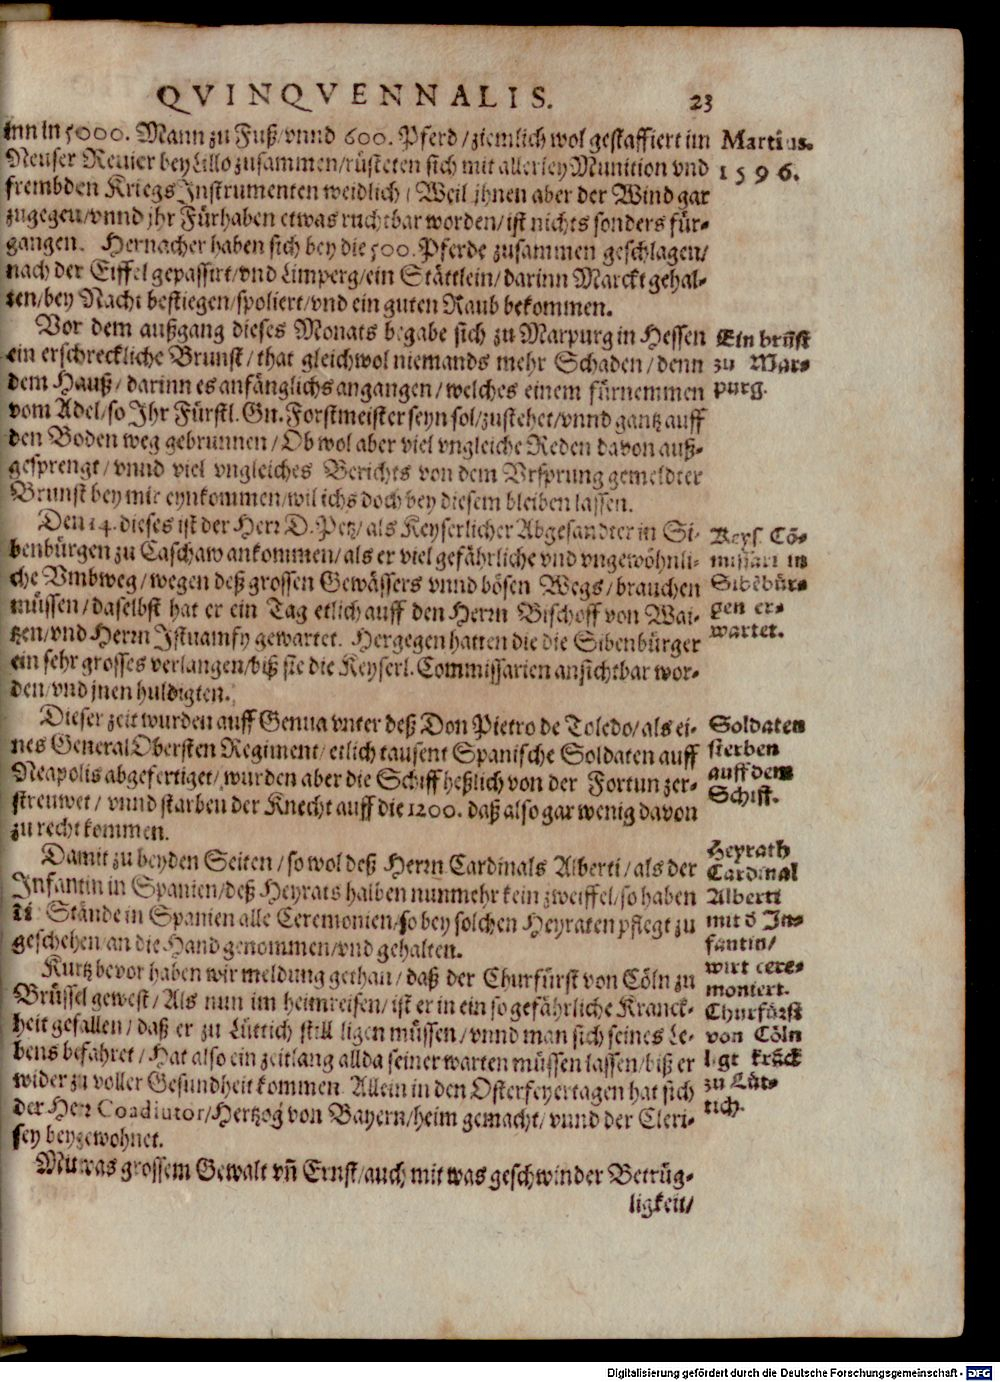 QVINQVENNALIS. 23
inn in 5000. Mann zu Fuß/vnnd 600. Pferd/ziemlich wol gestaffiert im
Martius.
1596.
Neuser Reuier bey Lillo zusammen/rüsteten sich mit allerley Munition vnd
frembden Kriegs Instrumenten weidlich/Weil jhnen aber der Wind gar
zugegen/vnnd jhr Fürhaben etwas ruchtbar worden/ist nichts sonders für-
gangen. Hernacher haben sich bey die 500. Pferde zusammen geschlagen/
nach der Eiffel gepassirt/vnd Limperg/ein Stättlein/darinn Marckt gehal-
ten/bey Nacht bestiegen/spoliert/vnd ein guten Raub bekommen.
Vor dem außgang dieses Monats begabe sich zu Marpurg in Hessen
Ein brũst
zu Mar-
purg.
ein erschreckliche Brunst/that gleichwol niemands mehr Schaden/denn
dem Hauß/darinn es anfänglichs angangen/welches einem fürnemmen
vom Adel/so Ihr Fürstl. Gn. Forstmeister seyn sol/zustehet/vnnd gantz auff
den Boden weg gebrunnen/Ob wol aber viel vngleiche Reden davon auß-
gesprengt/vnnd viel vngleiches Berichts von dem Vrsprung gemeldter
Brunst bey mir eynkommen/wil ichs doch bey diesem bleiben lassen.
Den 14. dieses ist der Herr D. Petz/als Keyserlicher Abgesandter in Si-
Keys. Cõ-
missari in
Sibẽbür-
gen er-
wartet.
benbürgen zu Caschaw ankommen/als er viel gefährliche vnd vngewöhnli-
che Vmbweg/wegen deß grossen Gewässers vnnd bösen Wegs/brauchen
müssen/daselbst hat er ein Tag etlich auff den Herrn Bischoff von Wai-
tzen/vnd Herrn Istuamfy gewartet. Hergegen hatten die die Sibenbürger
ein sehr grosses verlangen/biß sie die Keyserl. Commissarien ansichtbar wor-
den/vnd jnen huldigten.
Dieser zeit wurden auff Genua vnter deß Don Pietro de Toledo/als ei-
Soldaten
sterben
auff dem
Schiff.
nes General Obersten Regiment/etlich tausent Spanische Soldaten auff
Neapolis abgefertiget/wurden aber die Schiff heßlich von der Fortun zer-
strewet/vnnd starben der Knecht auff die 1200. daß also gar wenig davon
zu recht kommen.
Damit zu beyden Seiten/so wol deß Herrn Cardinals Alberti/als der
Heyrath
Cardinal
Alberti
mit d In-
fantin/
wirt cere-
moniert.
Infantin in Spanien/deß Heyrats halben nunmehr kein zweiffel/so haben
Stände in Spanien alle Ceremonien/so bey solchen Heyraten pflegt zu
geschehen/an die Hand genommen/vnd gehalten.
Kurtz bevor haben wir meldung gethan/daß der Churfürst von Cöln zu
Churfürst
von Cöln
ligt krãck
zu Lüt-
tich.
Brüssel gewest/Als nun im heimreisen/ist er in ein so gefährliche Kranck-
heit gefallen/daß er zu Lüttich still ligen müssen/vnnd man sich seines Le-
bens befahret/Hat also ein zeitlang allda seiner warten müssen lassen/biß er
wider zu voller Gesundheit kommen. Allein in den Osterfeyertagen hat sich
der Herr Coadiutor/Hertzog von Bayern/heim gemacht/vnnd der Cleri-
sey beygewohnet.
Mit was grossem Gewalt vñ Ernst/auch mit was geschwinder Betrüg-
ligkeit/
Digitalisierung gefördert durch die Deutsche Forschungsgemeinschaft - DFG